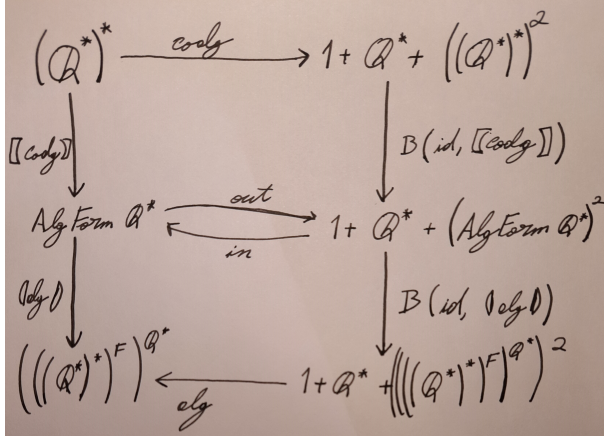 (Q*)* codg 1 + Q* + ((Q*)*)²
⟦codg⟧ B(id, ⟦codg⟧)
AlgForm Q* out 1 + Q* + (AlgForm Q*)²
in
⦇alg⦈ B(id, ⦇alg⦈)
(((Q*)*)^F)^Q* alg 1 + Q* + ((((Q*)*)^F)^Q*)²